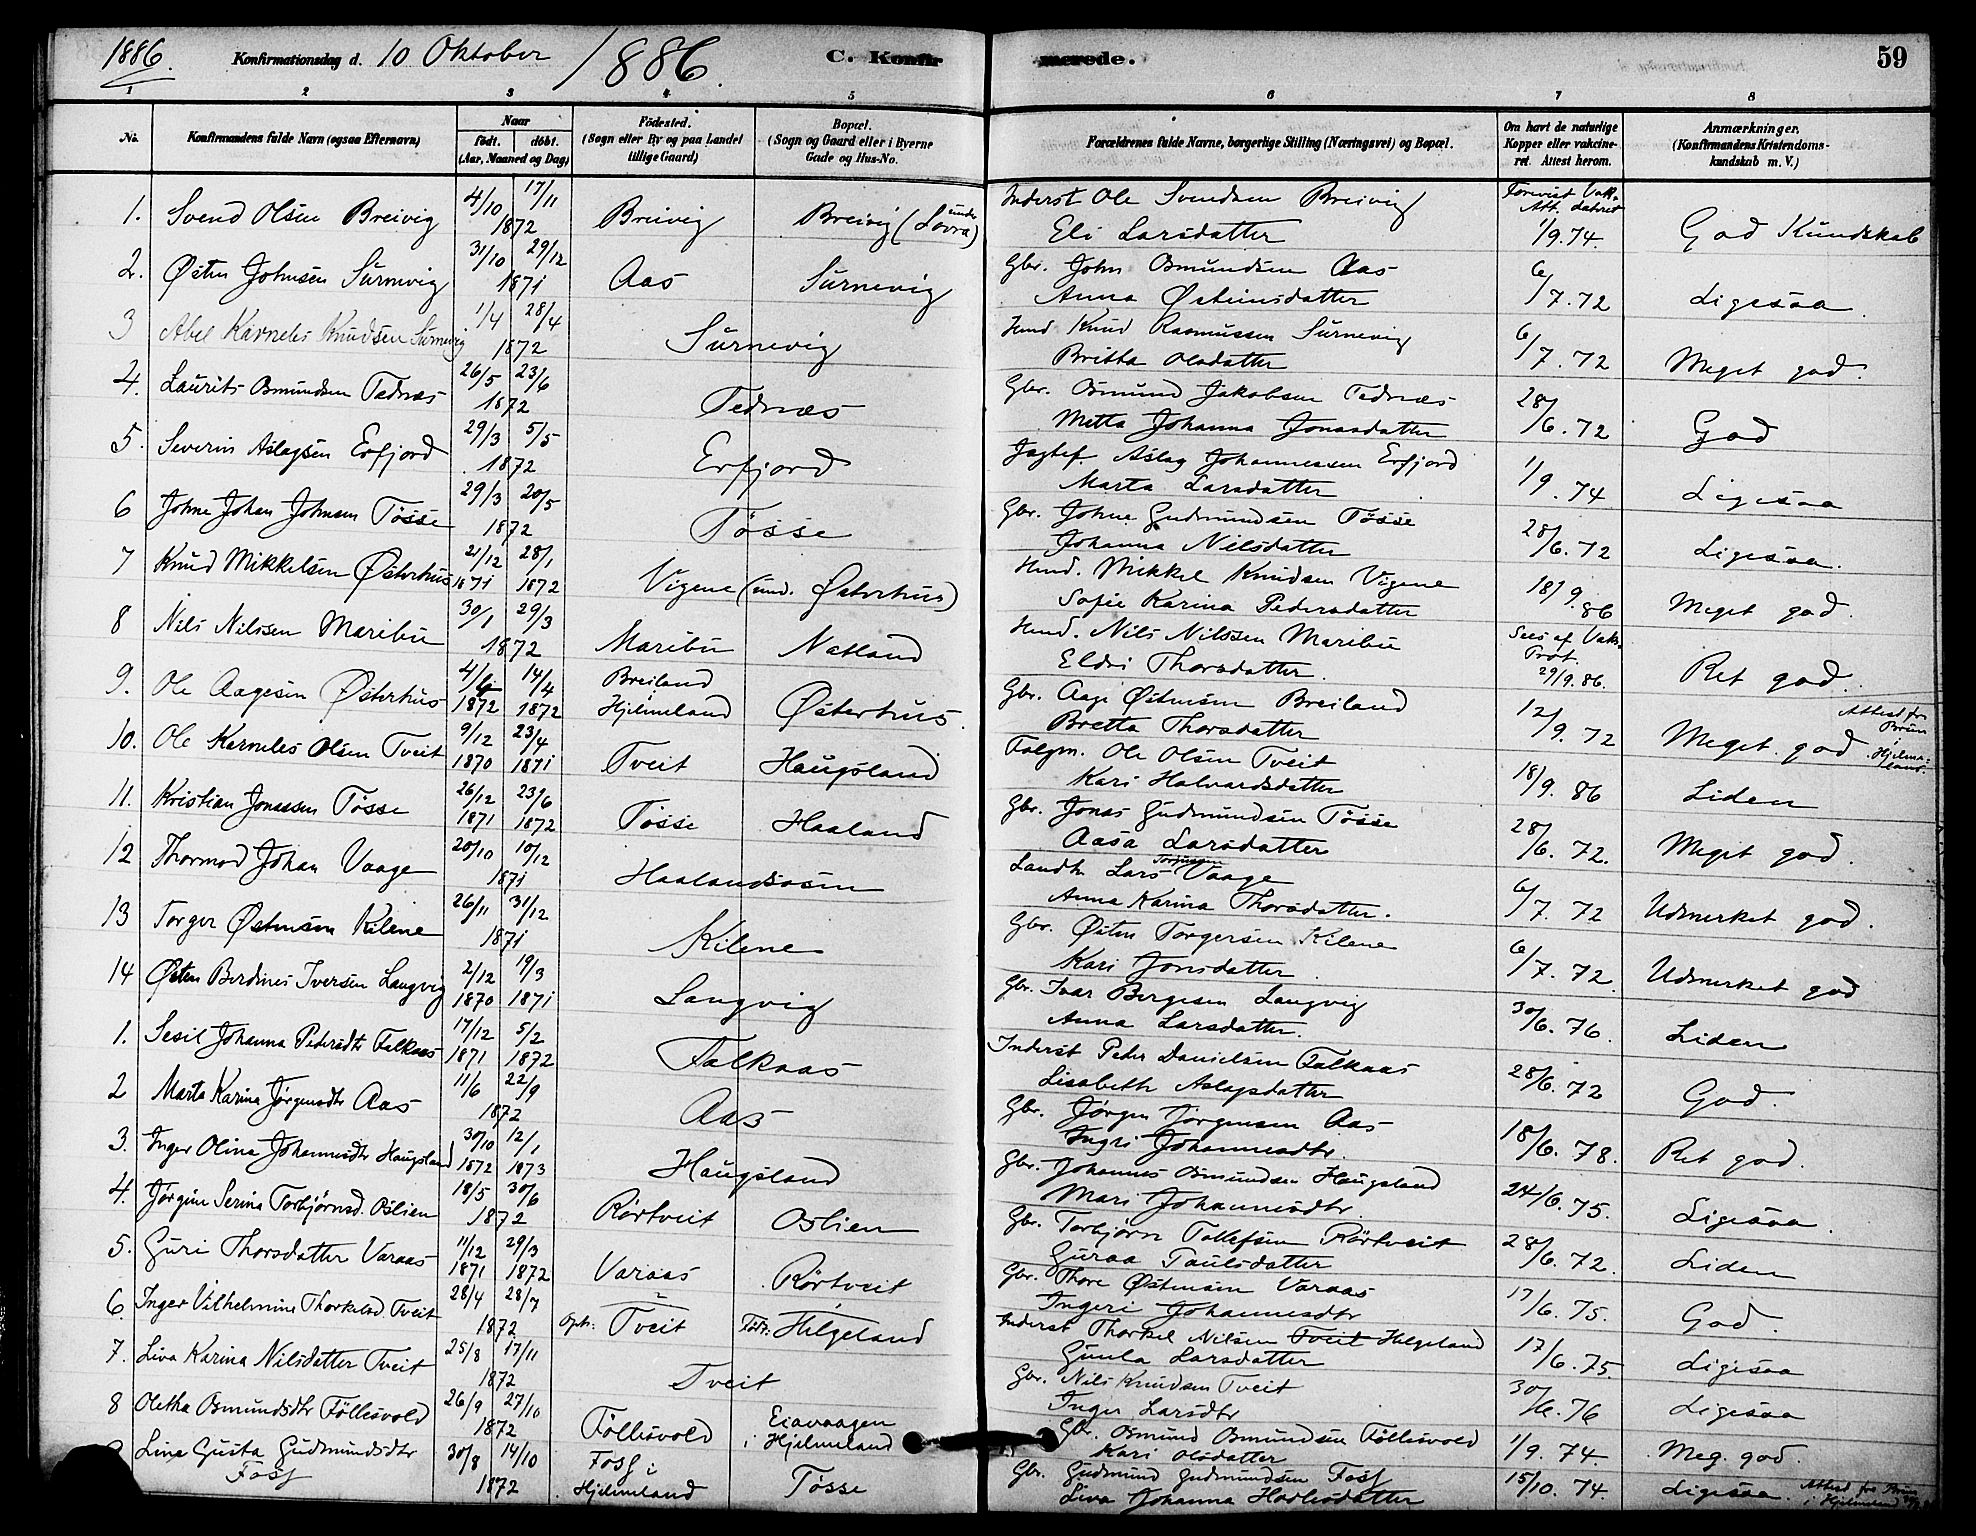 1886.
Konfirmationsdag d. 10 Oktober 1886.
C. Konfirmerede.
59
1 2 3 4 5 6 7 8
No.
Konfirmandens fulde Navn (ogsaa Efternavn)
Naar
født. døbt.
(Aar, Maaned og Dag)
Fødested.
(Sogn eller By og paa Landet
tillige Gaard)
Bopæl.
(Sogn og Gaard eller i Byerne
Gade og Hus-No.
Forældrenes fulde Navne, borgerlige Stilling (Næringsvei) og Bopæl.
Om havt de naturlige
Kopper eller vakcine-
ret. Attest herom.
Anmærkninger.
(Konfirmandens Kristendoms-
kundskab m. V.)
1. Svend Olsen Breivig 4/10 17/11 1872 Breivig Breivig (under Lovra) Inderst Ole Svendsen Breivig
Eli Larsdatter Forevist Vakc. Att. dateret 1/9.74. God Kundskab
2. Østen Johnsen Surnevig 31/10 29/12 1871 Aas Surnevig Gbr. John Osmundsen Aas
Anna Østeinsdatter 6/7.72 Ligesaa.
3 Abel Karnelés Knudsen Surnevig 1/4 28/4 1872 Surnevig Hmd Knud Rasmussen Surnevig
Britha Olsdatter 6/7.72 Meget god.
4. Laurits Osmundsen Tednæs 26/5 23/6 1872 Tednæs Gbr. Osmund Jakobsen Tednæs
Metta Johanna Jonasdatter 28/6.72 God
5. Severin Aslagsen Erfjord 29/3 5/5 1872 Erfjord Jagtef. Aslag Johannessen Erfjord
Marta Larsdatter 1/9.74 Ligesaa
6 Johne Johan Johnsen Tøsse 29/3 20/5 1872 Tøsse Gbr. Johne Gudmundsen Tøsse
Johanna Nilsdatter 28/6.72 Ligesaa.
7 Knud Mikkelsen Østerhus 21/12 1871 28/1 1872 Vigene (und. Østerhus) Hmd. Mikkel Knudsen Vigene
Sofie Karina Pedersdatter 18/9.86 Meget god.
8 Nils Nilssen Maribu 30/1 29/3 1872 Maribu Natland Hmd. Nils Nilssen Maribu
Eldri Thorsdatter. Sees af Vakc. Prot. 29/9.86. Ret god.
9. Ole Aagesen Østerhus 4/4 1872 14/4 1872 Breiland Hjelmeland Østerhus. Gbr. Aage Østensen Breiland
Bretta Thorsdatter 12/9.72 Meget god. Attest fra Brun i Hjelmeland.
10. Ole Karneles Olsen Tveit 9/12 1870 23/4 1871 Tveit Haugsland Folgm. Ole Olsen Tveit
Kari Halvardsdatter 18/9.86 Liden
11. Kristian Jonassen Tøsse 26/12 1871 23/6 1872 Tøsse Haaland Gbr. Jonas Gudmundsen Tøsse
Aasa Larsdatter 28/6.72. Meget god.
12 Thormod Johan Vaage 20/10 10/12 1871 Haalandsosen Landh. Lars Torjussen Vaage
Anna Karina Thorsdatter. 6/7.72 Udmerket god.
13 Torger Østensen Kilene 26/11 31/12 1871 Kilene Gbr. Østen Torgersen Kilene
Kari Jonsdatter. 6/7.72 Udmerket god
14 Østen Berdines Iversen Langvig 2/12 1870 19/3 1871 Langvig Gbr. Ivar Bergesen Langvig
Anna Larsdatter. 30/6.76. Liden
1. Sesil Johanna Pedersdtr Falkaas 17/12 1871 5/2 1872 Falkaas Inderst Peder Danielsen Falkaas
Lisabeth Aslagsdatter 28/6.72 God.
2 Marta Karina Jørgensdtr Aas 11/6 22/9 1872 Aas Gbr. Jørgen Jørgensen Aas
Ingri Johannesdtr. 18/6.78. Ret god.
3. Inger Olina Johannesdtr Haugsland 30/10 1872 12/1 1873 Haugsland Gbr. Johannes Osmundsen Haugsland
Mari Johannesdtr. 24/6.75. Ligesaa.
4. Jørgine Serina Torbjørnsd. Oslien 18/5 30/6 1872 Rørtveit Oslien Gbr. Torbjørn Tollefsen Rörtveit
Guraa Paulsdatter 28/6.72. Liden
5. Guri Thorsdatter Varaas 11/12 1871 29/3 1872 Varaas Rörtveit Gbr. Thore Østensen Varaas
Ingeri Johannesdtr 17/6.75. God.
6. Inger Vilhelmine Thorkelsd. Tveit 28/4 28/7 1872 Opt: Tveit Født: Helgeland Inderst Thorkel Nilsen Tveit Helgeland
Gunla Larsdatter 17/6.75. Ligesaa
7. Liva Karina Nilsdatter Tveit 25/8 17/11 1872 Tveit Gbr. Nils Knudsen Tveit
Inger Larsdtr 30/6.76 Ligesaa
8 Oletha Osmundsdtr Föllesvold 26/9 27/10 1872 Föllesvold Eiavaagen i Hjelmeland Gbr. Osmund Osmundsen Föllesvold
Kari Olsdatter 1/9.74 Meg. god.
Lina Gusta Gudmundsdtr
Fosf 30/8 14/10 1872 Fosf i Hjelmeland Tøsse Gbr. Gudmund Gudmundsen Fosf
Liva Johanna Hodlesdatter 15/10.74. Ligesaa. Attest fra Brun i Hjelmeland